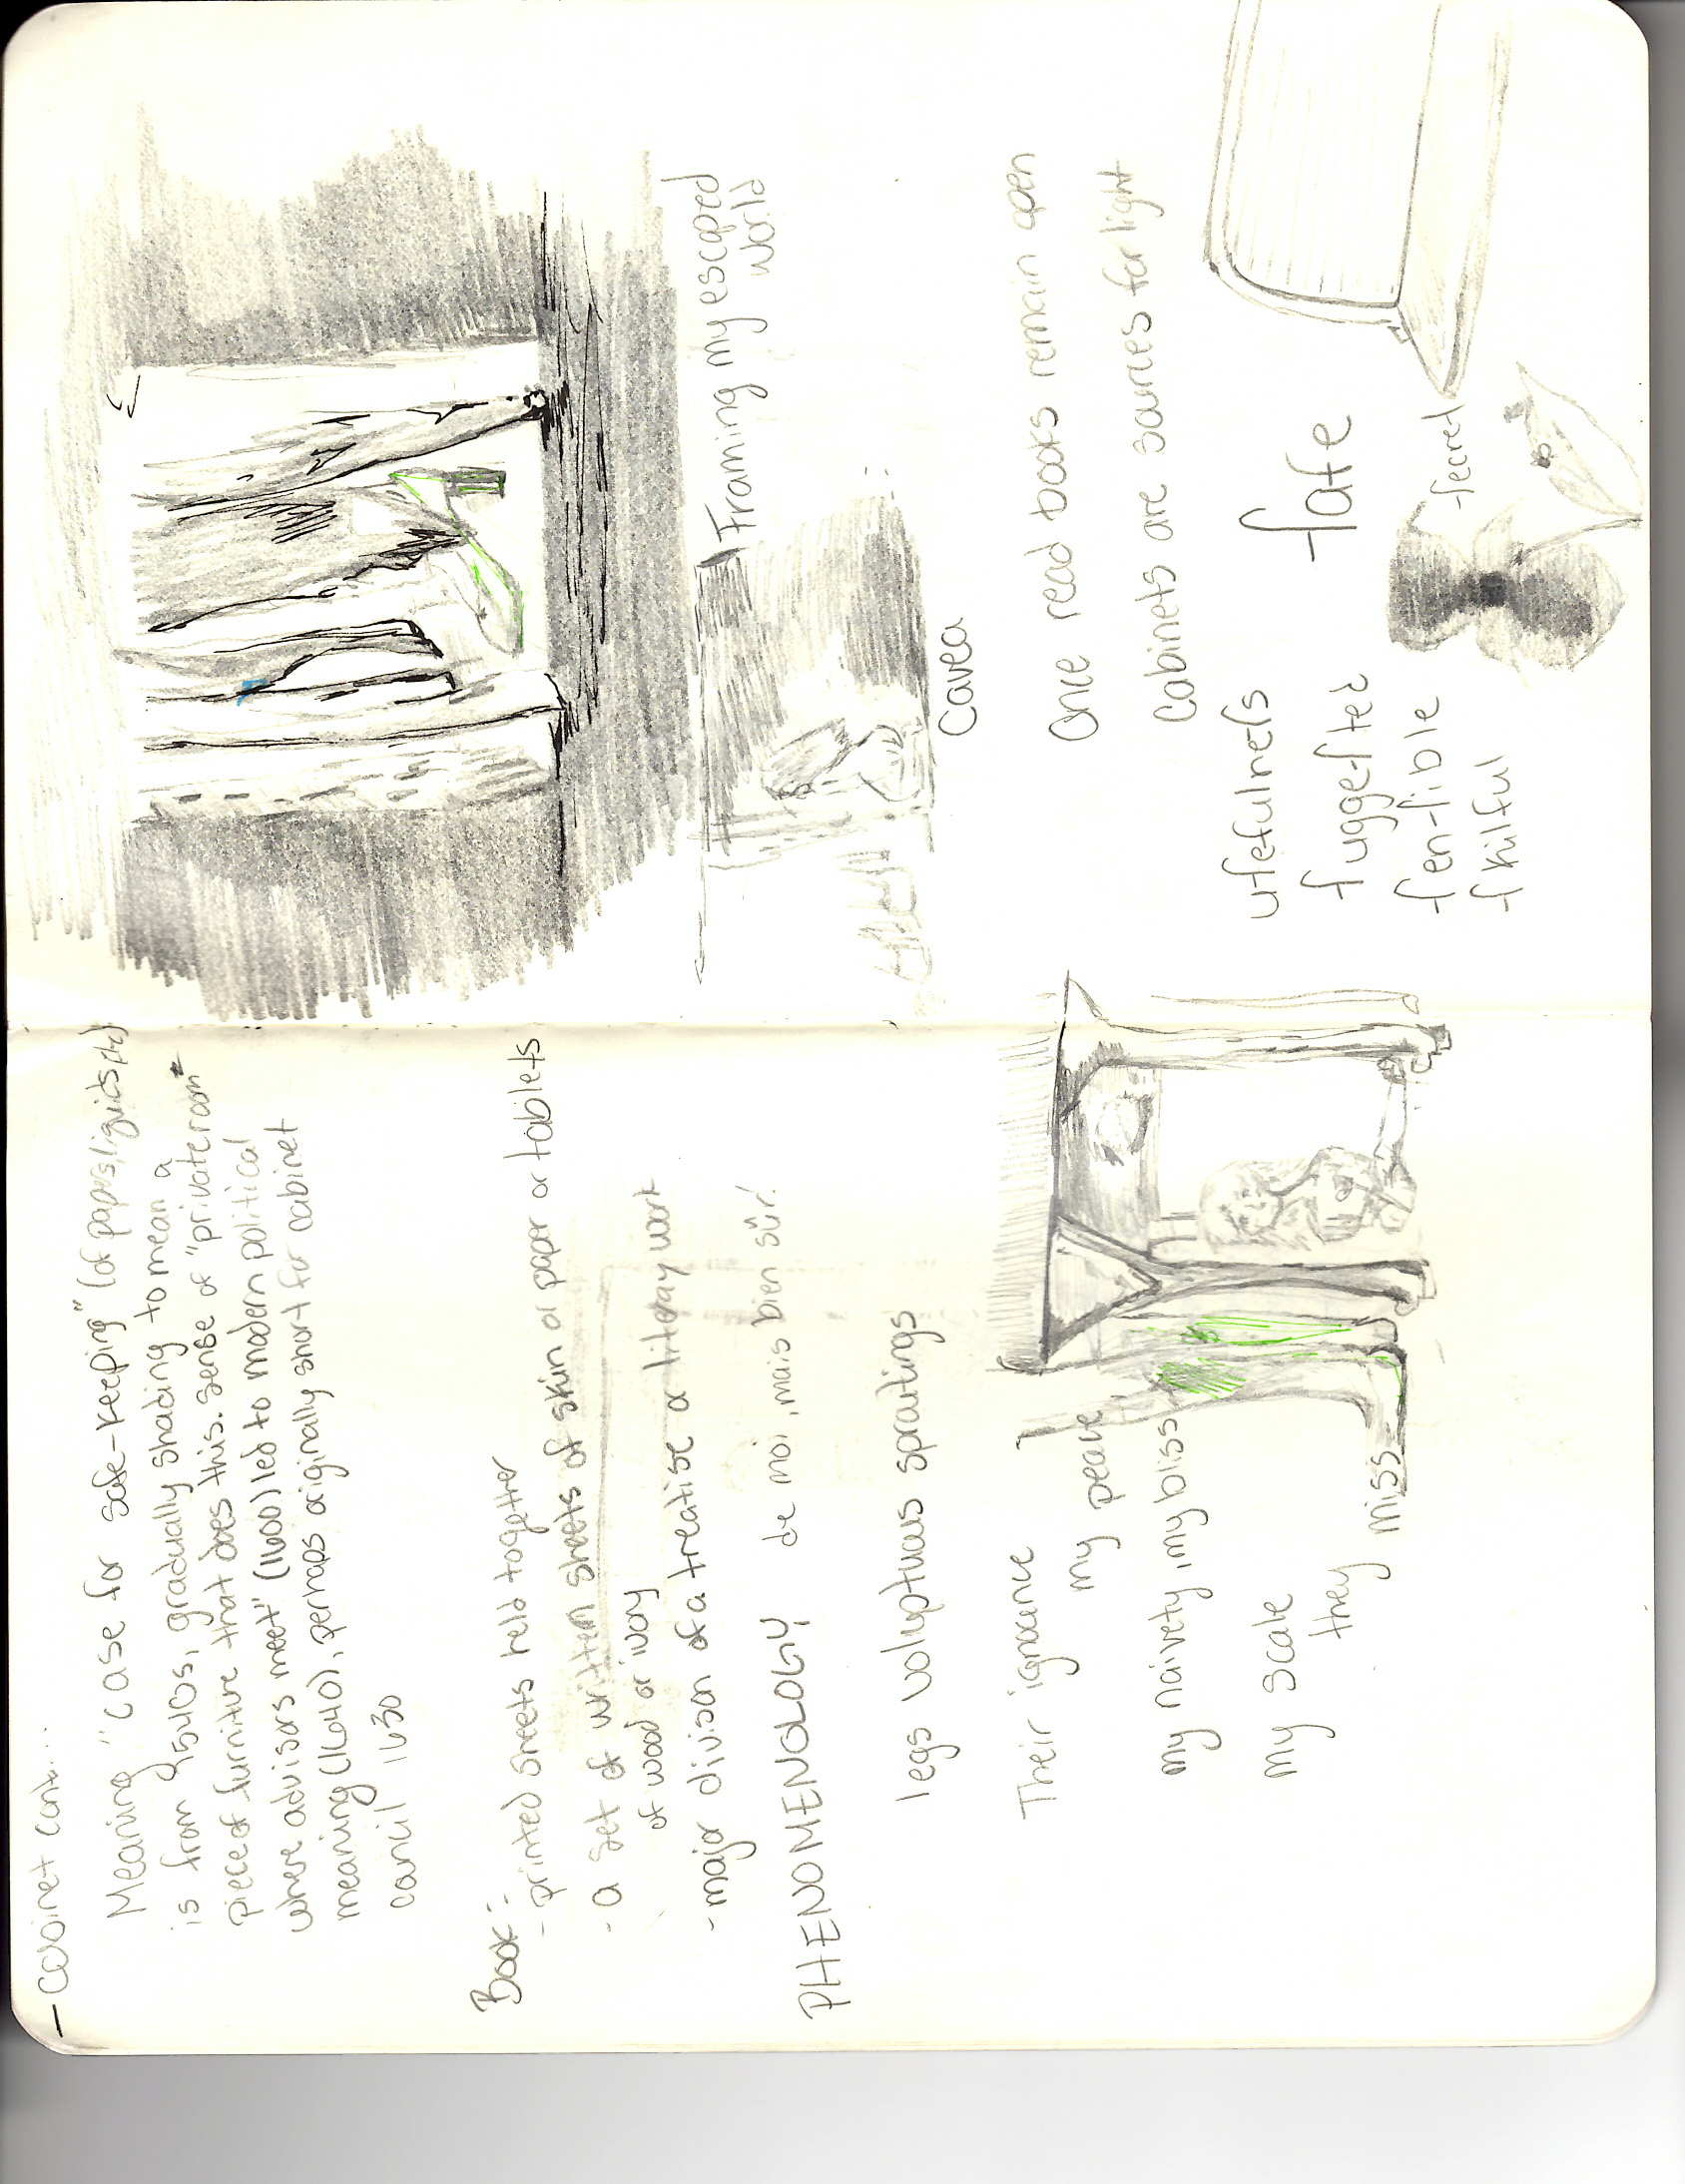 - cabinet cont...
Meaning "case for safe-keeping" (of papers, liquids, etc)
is from 1540s, gradually shading to mean a
piece of furniture that does this. sense of "private room
where advisors meet" (1600) led to modern political
meaning (1640), perhaps originally short for cabinet
council 1630
Book:
- printed sheets held together
- a set of written sheets of skin or paper or tablets
of wood or ivory
- major divison of a treatise or literary work
PHENOMENOLOGY de moi, mais bien sûr!
legs voluptuous sproutings
Their ignorance
my peace
my naivety, my bliss
my scale
they
miss
Framing my escaped
world
cavea
Once read books remain open
Cabinets are sources for light
uſefulneſs
ſuggeſted
ſen-ſible
ſkilful
ſafe
ſecret